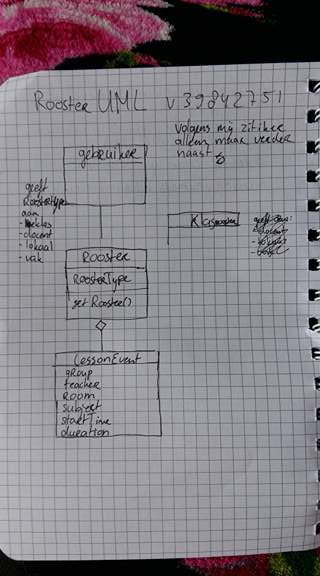 Rooster UML v39842751
volgens mij zit ik er
alleen maar verder
naast
gebruiker
geeft
RoosterType
aan
- klas
- docent
- lokaal
- vak
Klasrooster
Rooster
RoosterType
getRooster()
LessonEvent
group
teacher
Room
subject
startTime
duration